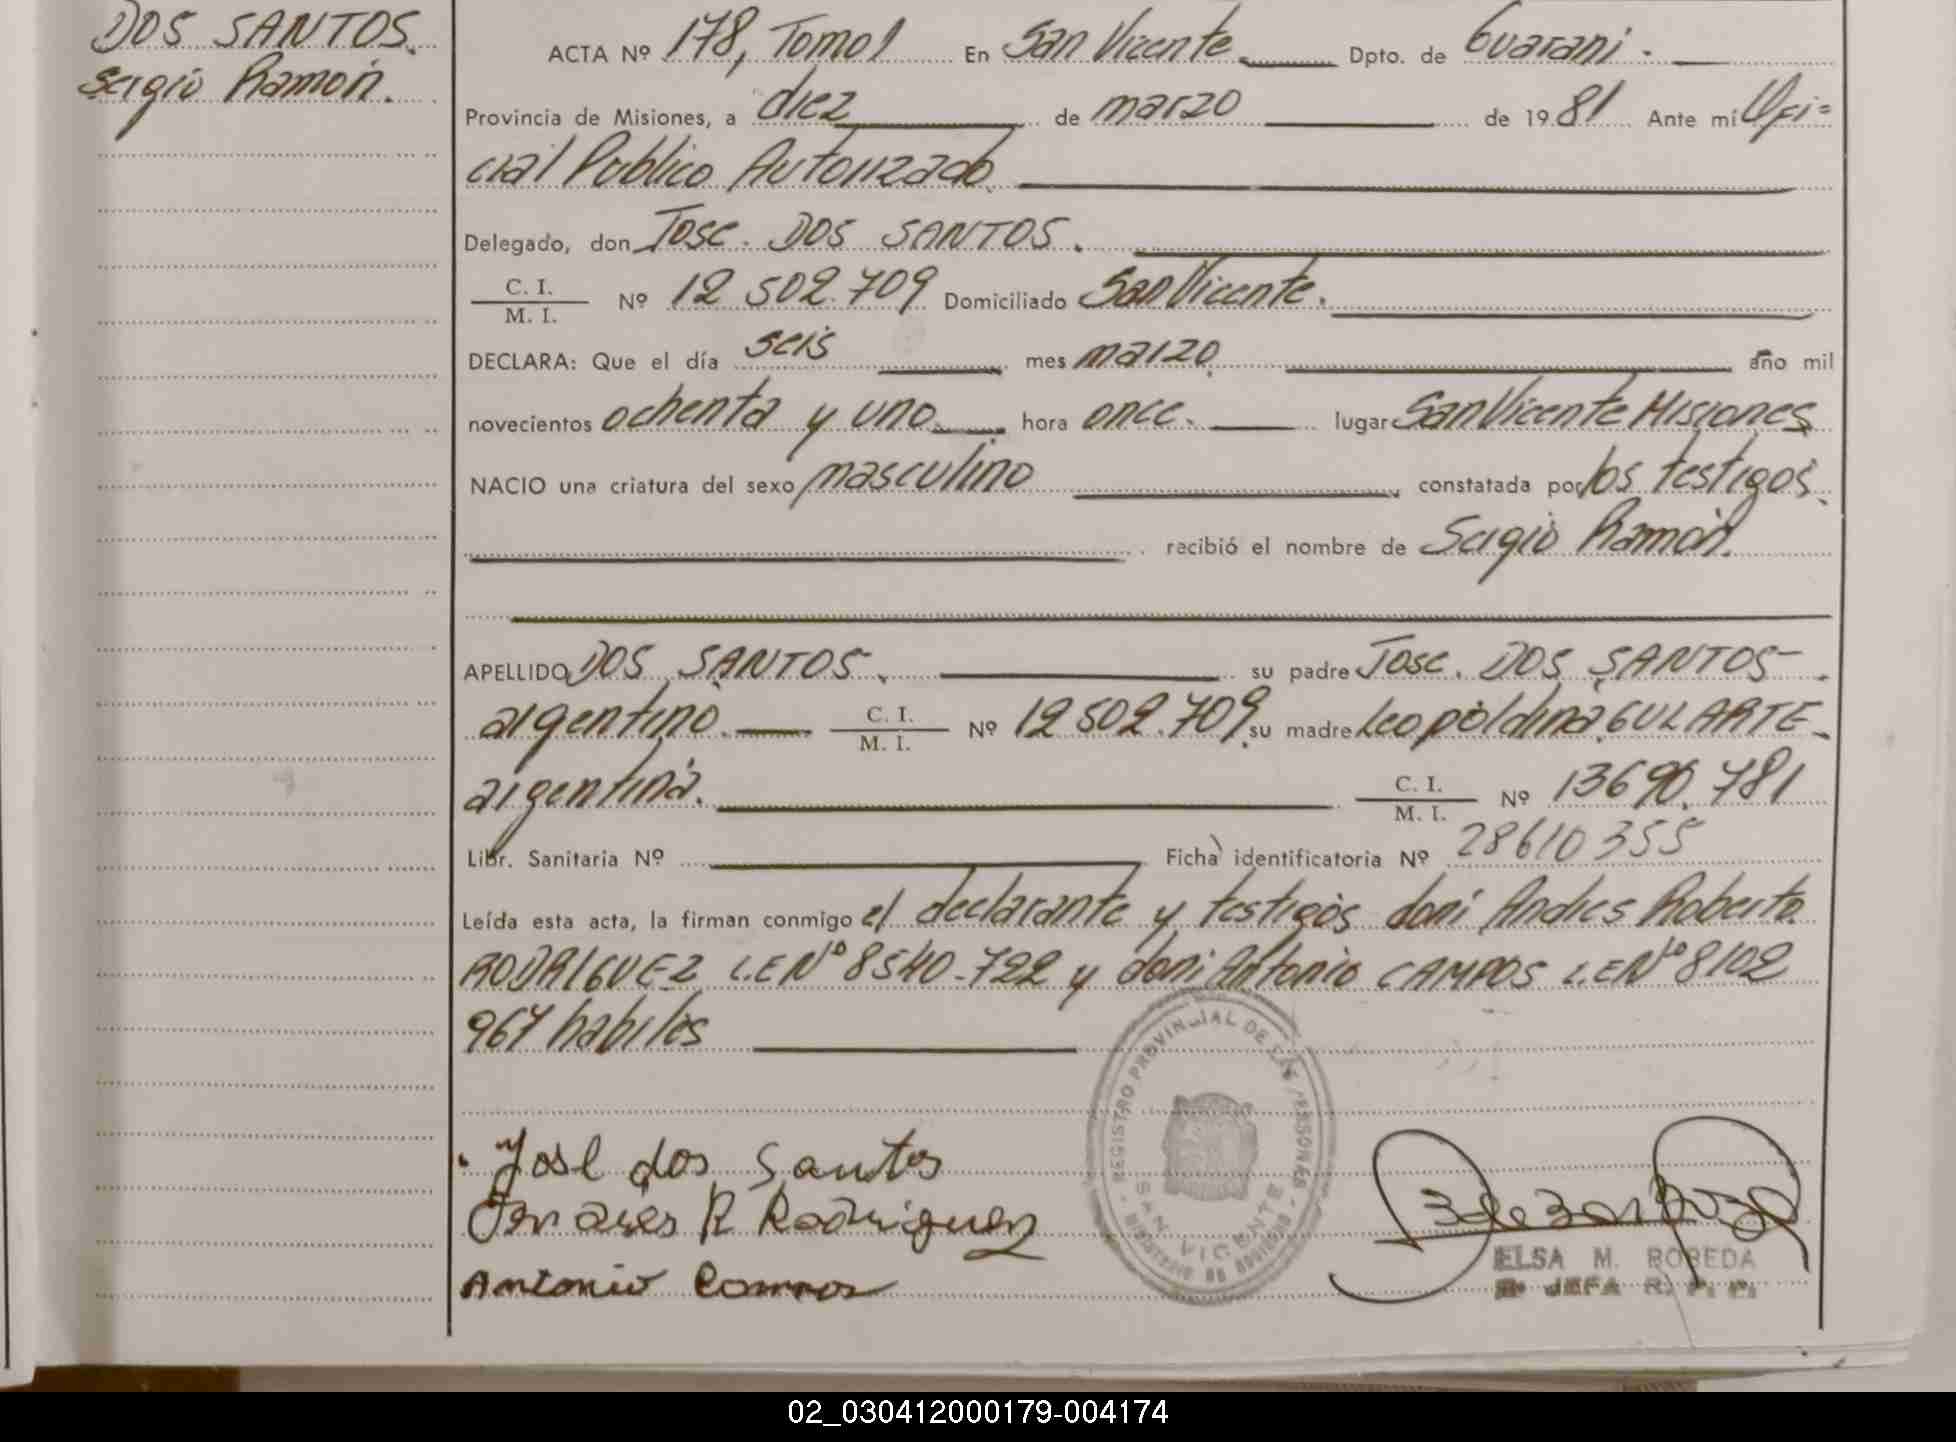 DOS SANTOS.
Sergio Ramón.
ACTA Nº 178, Tomo I En San Vicente Dpto. de Guaraní.
Provincia de Misiones, a diez de marzo de 1981 Ante mí Ofi=
cial Publico Autorizado
Delegado, don Jose. DOS SANTOS.
C. I.
M. I. Nº 12 502.709 Domiciliado San Vicente.
DECLARA: Que el día seis mes marzo año mil
novecientos ochenta y uno. hora once. lugar San Vicente Misiones
NACIO una criatura del sexo masculino constatada por los testigos.
recibió el nombre de Sergio Ramón.
APELLIDO DOS SANTOS. su padre Jose. DOS SANTOS-.
argentino. C. I. M. I. Nº 12 502.709 su madre Leopoldina GULARTE-
argentina. C. I. M. I. Nº 13690.781
Libr. Sanitaria Nº Ficha identificatoria Nº 28610355
Leída esta acta, la firman conmigo el declarante y testigos doni Andres Roberto
RODRIGUEZ L.E Nº 8540-722 y doni Antonio CAMPOS L.E Nº 8102
967 habiles
José dos Santos
R Rodriguez
Antonio
REGISTRO PROVINCIAL DE LAS PERSONAS
SAN VICENTE
MINISTERIO DE GOBIERNO
ELSA M. BOBEDA
JEFA R. P. P.
02_030412000179-004174